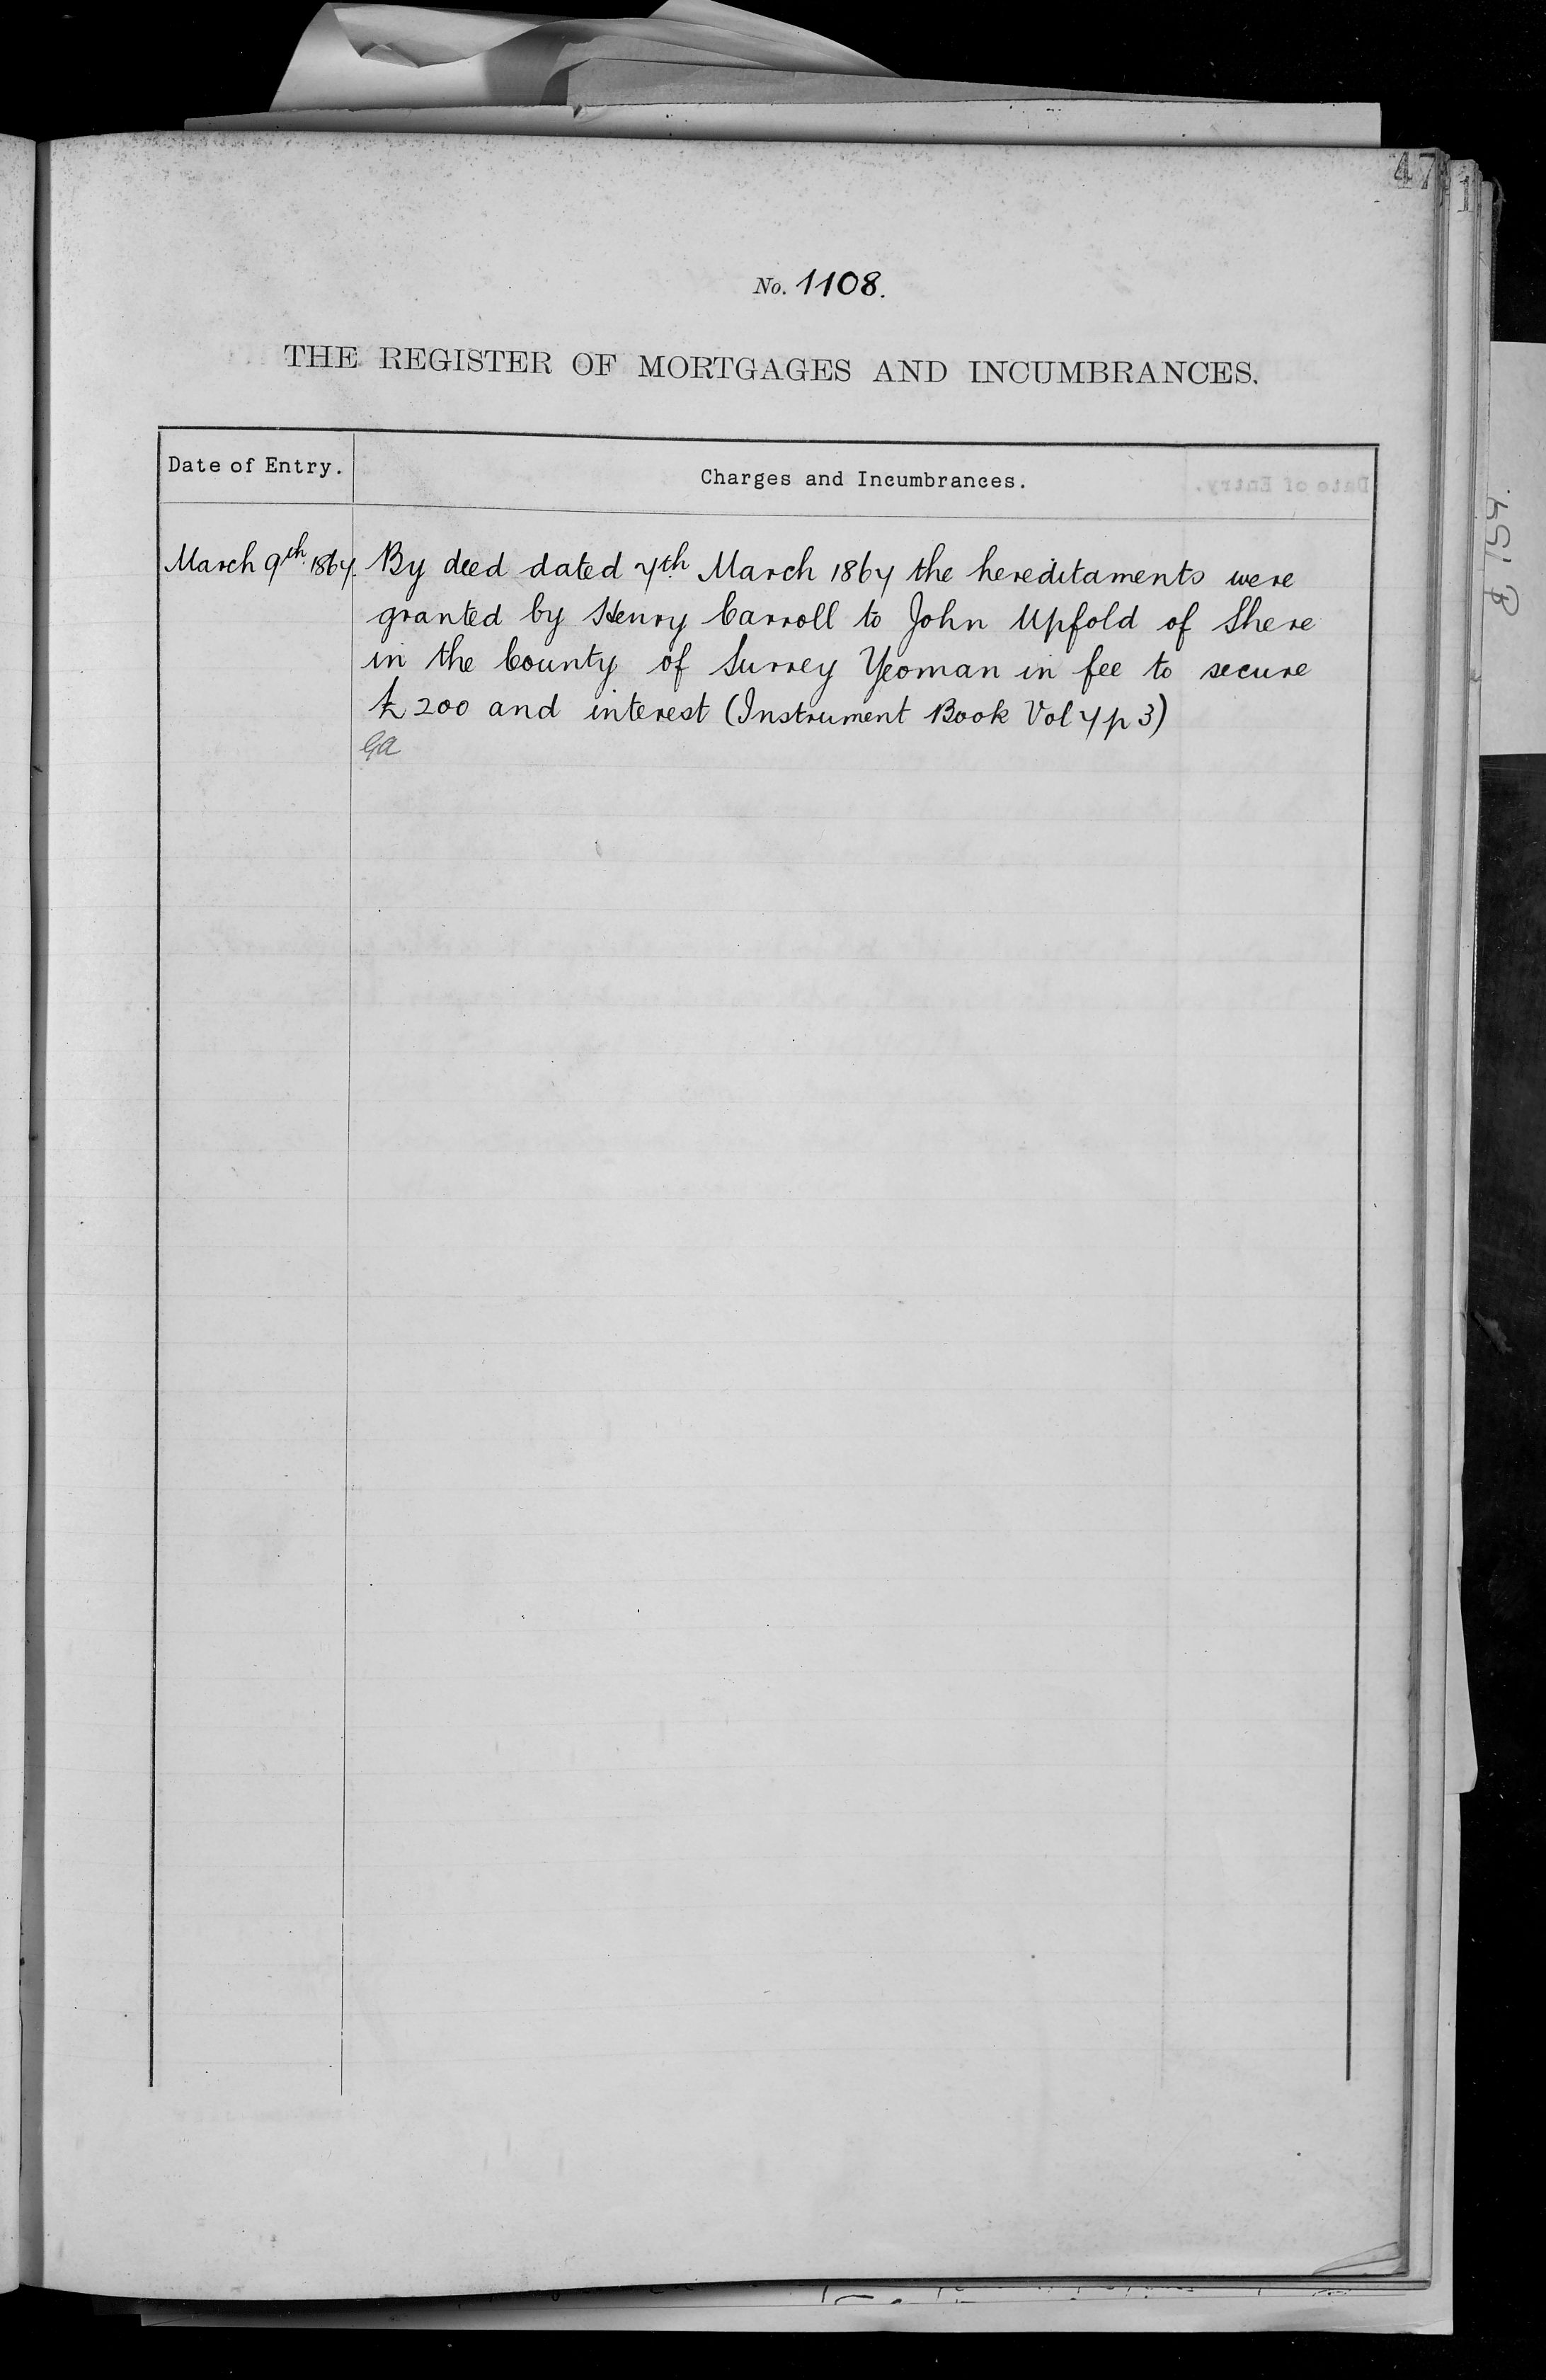 47
1
No. 1108.
THE REGISTER OF MORTGAGES AND INCUMBRANCES.
Date of Entry.
Charges and Incumbrances.
March 9th. 1867.
By deed dated 7th. March 1867 the hereditaments were
granted by Henry Carroll to John Upfold of Shere
in the County of Surrey Yeoman in fee to secure
£200 and interest (Instrument Book Vol 7 p 3)
GA